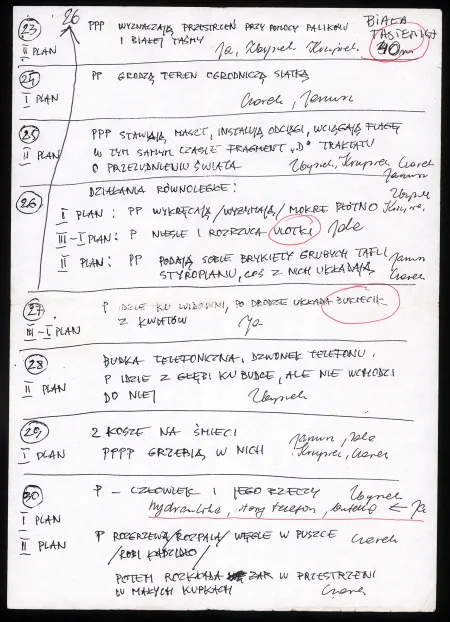 26
23 PPP WYZNACZAJĄ PRZESTRZEŃ PRZY POMOCY PALIKÓW
III PLAN I BIAŁEJ TAŚMY Ja, Zbyszek
BIAŁA
TASIEMKA
40m
24 PP GRODZĄ TEREN OGRODNICZĄ SIATKĄ
I PLAN Czarek, Janusz
25 PPP STAWIAJĄ MASZT, INSTALUJĄ ODCIĄGI, WCIĄGAJĄ FLAGĘ
II PLAN W TYM SAMYM CZASIE FRAGMENT „D” TRAKTATU
O PRZELUDNIENIU ŚWIATA Zbyszek, Czarek
Janusz
26 DZIAŁANIA RÓWNOLEGŁE:
Zbyszek
I PLAN: PP WYKRĘCAJĄ/WYŻYMAJĄ/MOKRE PŁÓTNO
III-I PLAN: P NIESIE I ROZRZUCA ULOTKI
II PLAN: PP PODAJĄ SOBIE BRYKIETY GRUBYCH TAFLI Janusz
STYROPIANU, COŚ Z NICH UKŁADAJĄ Czarek
27 P IDZIE KU WIDOWNI, PO DRODZE UKŁADA BUKIECIK
III-I PLAN Z KWIATÓW Ja
28 BUDKA TELEFONICZNA, DZWONEK TELEFONU.
II PLAN P IDZIE Z GŁĘBI KU BUDCE, ALE NIE WCHODZI
DO NIEJ Zbyszek
29 2 KOSZE NA ŚMIECI Janusz,
I PLAN PPPP GRZEBIĄ W NICH Czarek
30 P – CZŁOWIEK I JEGO RZECZY Zbyszek
I PLAN hydraulika, stary telefon, butelka ← Ja
II PLAN P ROZGRZEWA/ROZPALA/WĘGLE W PUSZCE Czarek
/ROBI KADZIDŁO/
POTEM ROZKŁADA ŻAR W PRZESTRZENI
W MAŁYCH KUPKACH Czarek